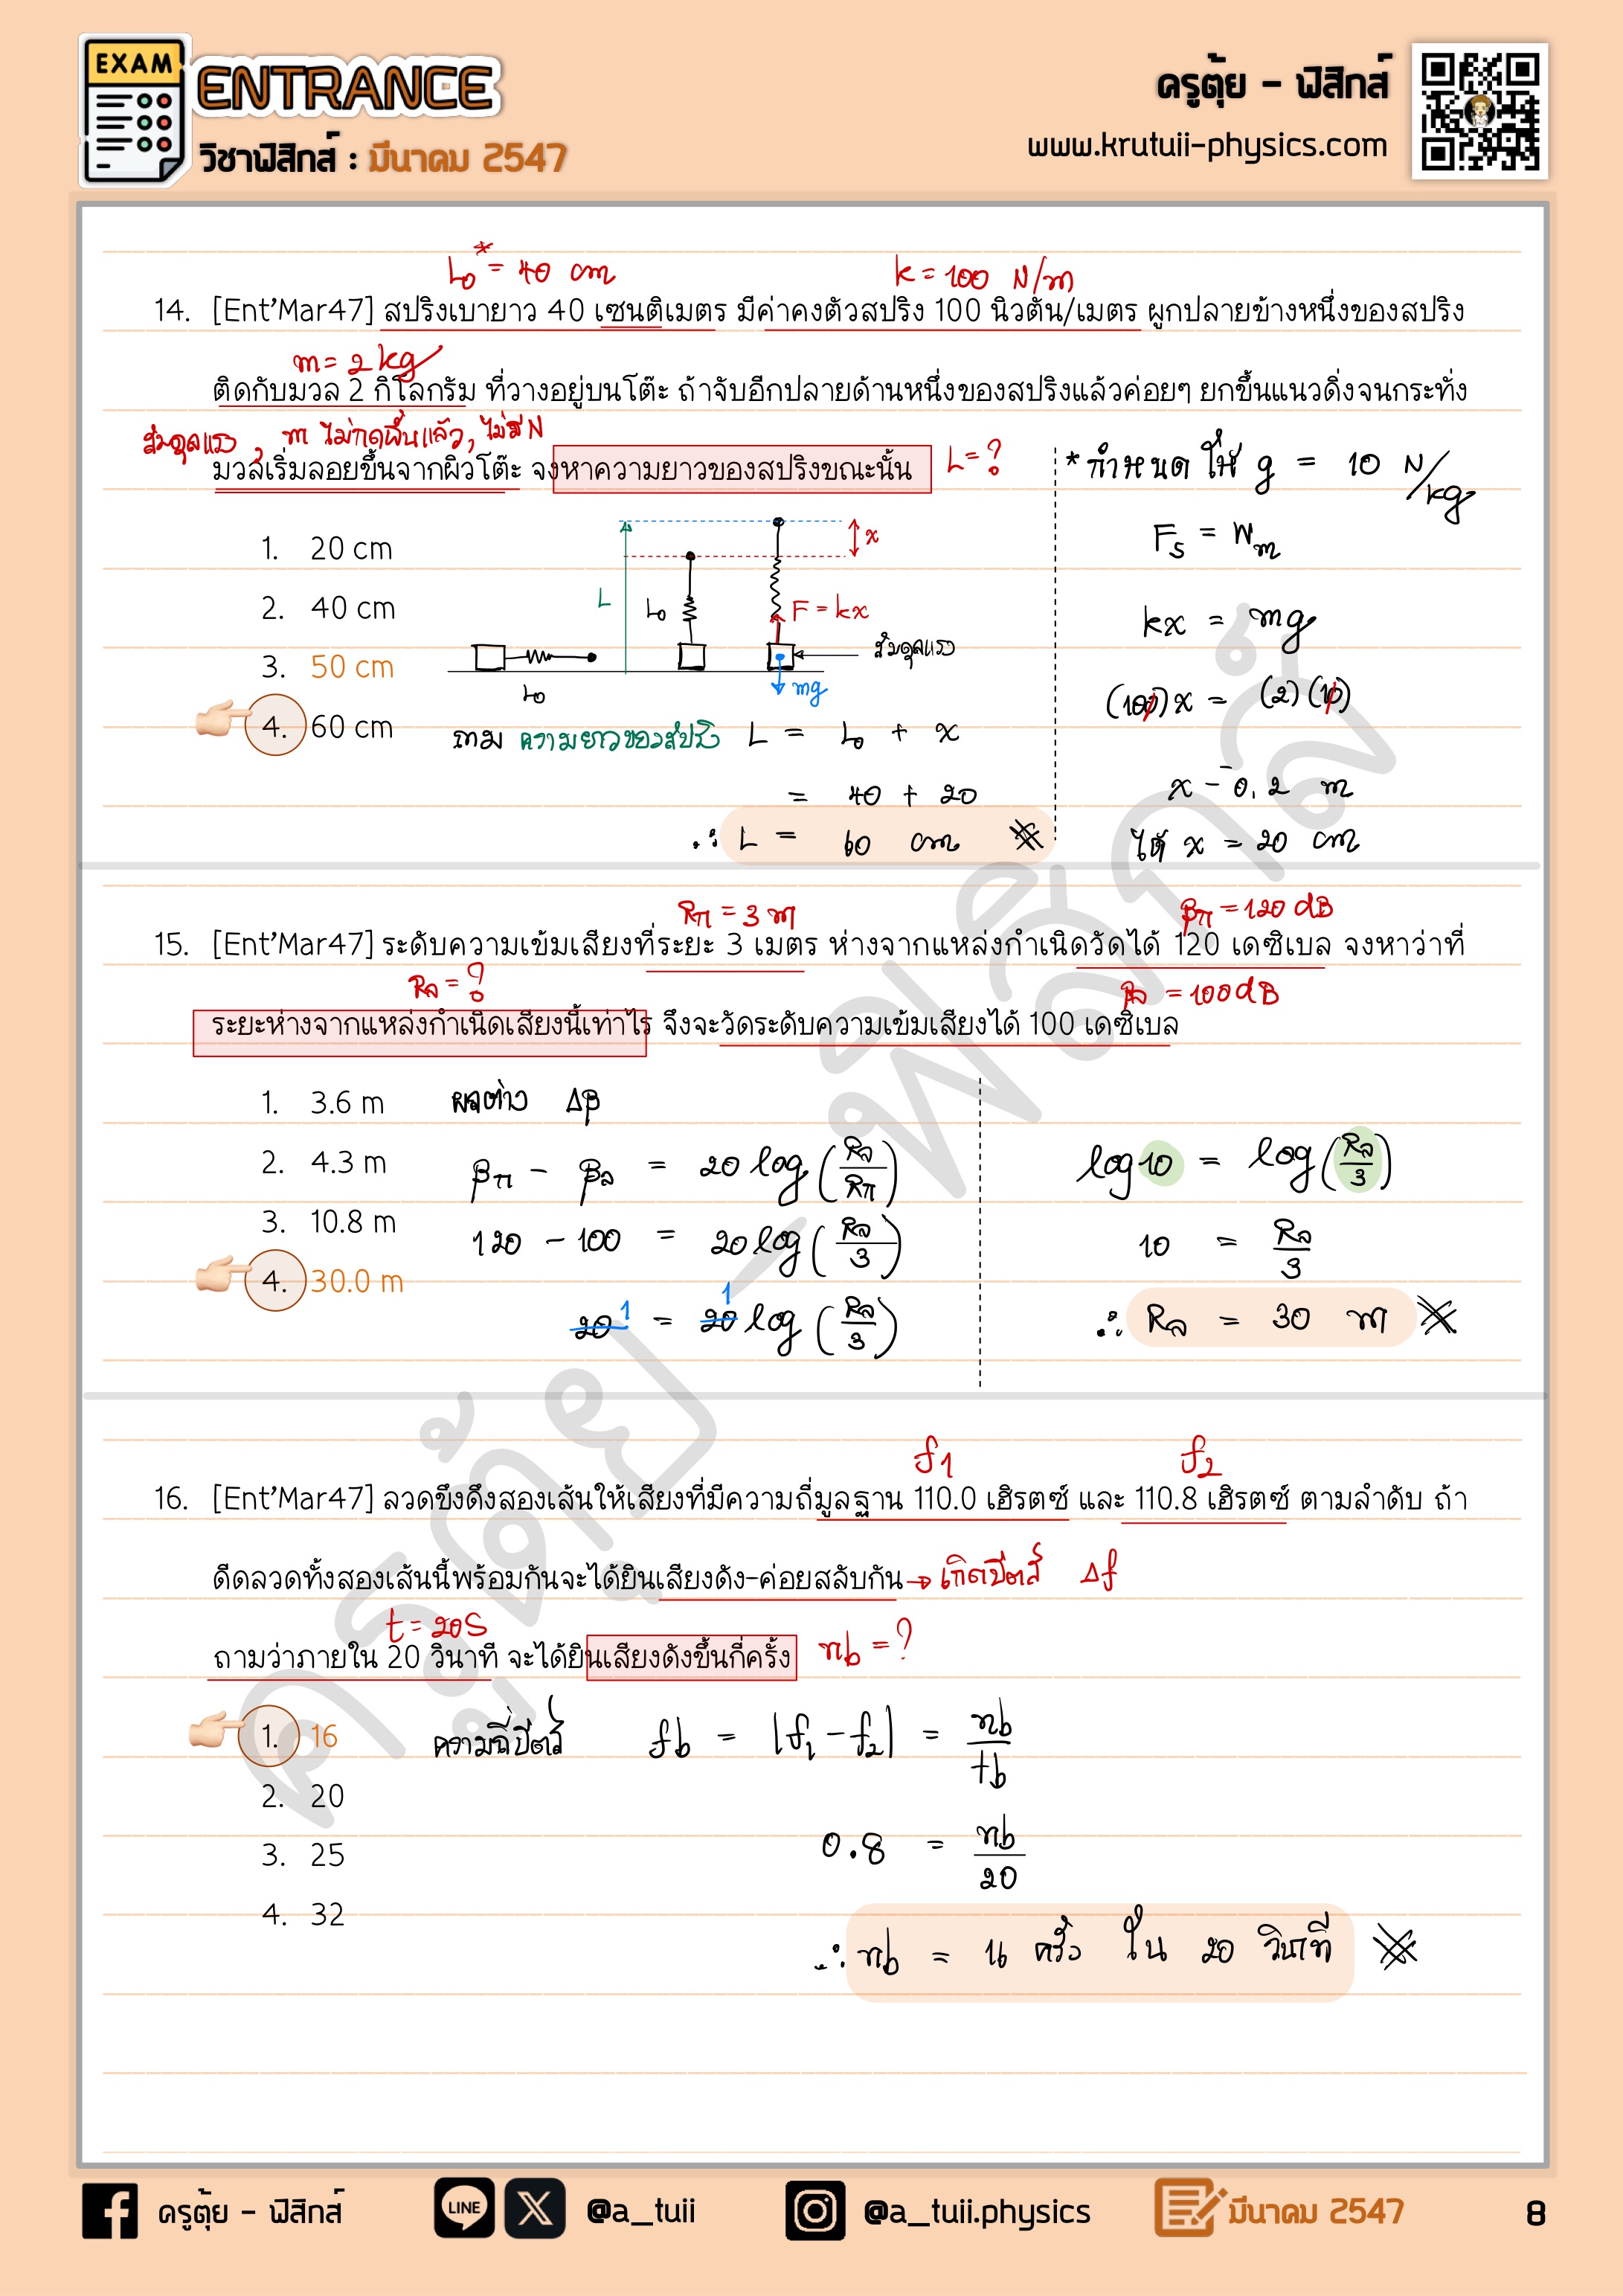 EXAM
ENTRANCE
วิชาฟิสิกส์ : มีนาคม 2547
ครูตุ้ย - ฟิสิกส์
www.krutuii-physics.com
L₀* = 40 cm
k = 100 N/m
14. [Ent'Mar47] สปริงเบายาว 40 เซนติเมตร มีค่าคงตัวสปริง 100 นิวตัน/เมตร ผูกปลายข้างหนึ่งของสปริง
m = 2 kg
ติดกับมวล 2 กิโลกรัม ที่วางอยู่บนโต๊ะ ถ้าจับอีกปลายด้านหนึ่งของสปริงแล้วค่อยๆ ยกขึ้นแนวดิ่งจนกระทั่ง
สมดุลแรง, m ไม่กดพื้นแล้ว, ไม่มี N
มวลเริ่มลอยขึ้นจากผิวโต๊ะ จงหาความยาวของสปริงขณะนั้น
L = ?
1. 20 cm
2. 40 cm
3. 50 cm
4. 60 cm
L
L₀
L₀
x
F = kx
สมดุลแรง
mg
ถาม ความยาวของสปริง L = L₀ + x
= 40 + 20
∴ L = 60 cm
* กำหนดให้ g = 10 N/kg
Fs = Wm
kx = mg
(100)x = (2)(10)
x = 0.2 m
ได้ x = 20 cm
Rก = 3 m
βก = 120 dB
15. [Ent'Mar47] ระดับความเข้มเสียงที่ระยะ 3 เมตร ห่างจากแหล่งกำเนิดวัดได้ 120 เดซิเบล จงหาว่าที่
Rล = ?
βล = 100 dB
ระยะห่างจากแหล่งกำเนิดเสียงนี้เท่าไร จึงจะวัดระดับความเข้มเสียงได้ 100 เดซิเบล
1. 3.6 m
2. 4.3 m
3. 10.8 m
4. 30.0 m
ผลต่าง Δβ
βก - βล = 20 log (Rล/Rก)
120 - 100 = 20 log (Rล/3)
20 1 = 20 1 log (Rล/3)
log 10 = log (Rล/3)
10 = Rล/3
∴ Rล = 30 m
f1
f2
16. [Ent'Mar47] ลวดขึงตึงสองเส้นให้เสียงที่มีความถี่มูลฐาน 110.0 เฮิรตซ์ และ 110.8 เฮิรตซ์ ตามลำดับ ถ้า
ดีดลวดทั้งสองเส้นนี้พร้อมกันจะได้ยินเสียงดัง-ค่อยสลับกัน → เกิดบีตส์ Δf
t = 20 s
ถามว่าภายใน 20 วินาที จะได้ยินเสียงดังขึ้นกี่ครั้ง
nb = ?
1. 16
2. 20
3. 25
4. 32
ความถี่บีตส์ fb = |f₁ - f₂| = nb/tb
0.8 = nb/20
∴ nb = 16 ครั้ง ใน 20 วินาที
ครูตุ้ย - ฟิสิกส์
ครูตุ้ย - ฟิสิกส์
LINE
@a_tuii
@a_tuii.physics
มีนาคม 2547
8